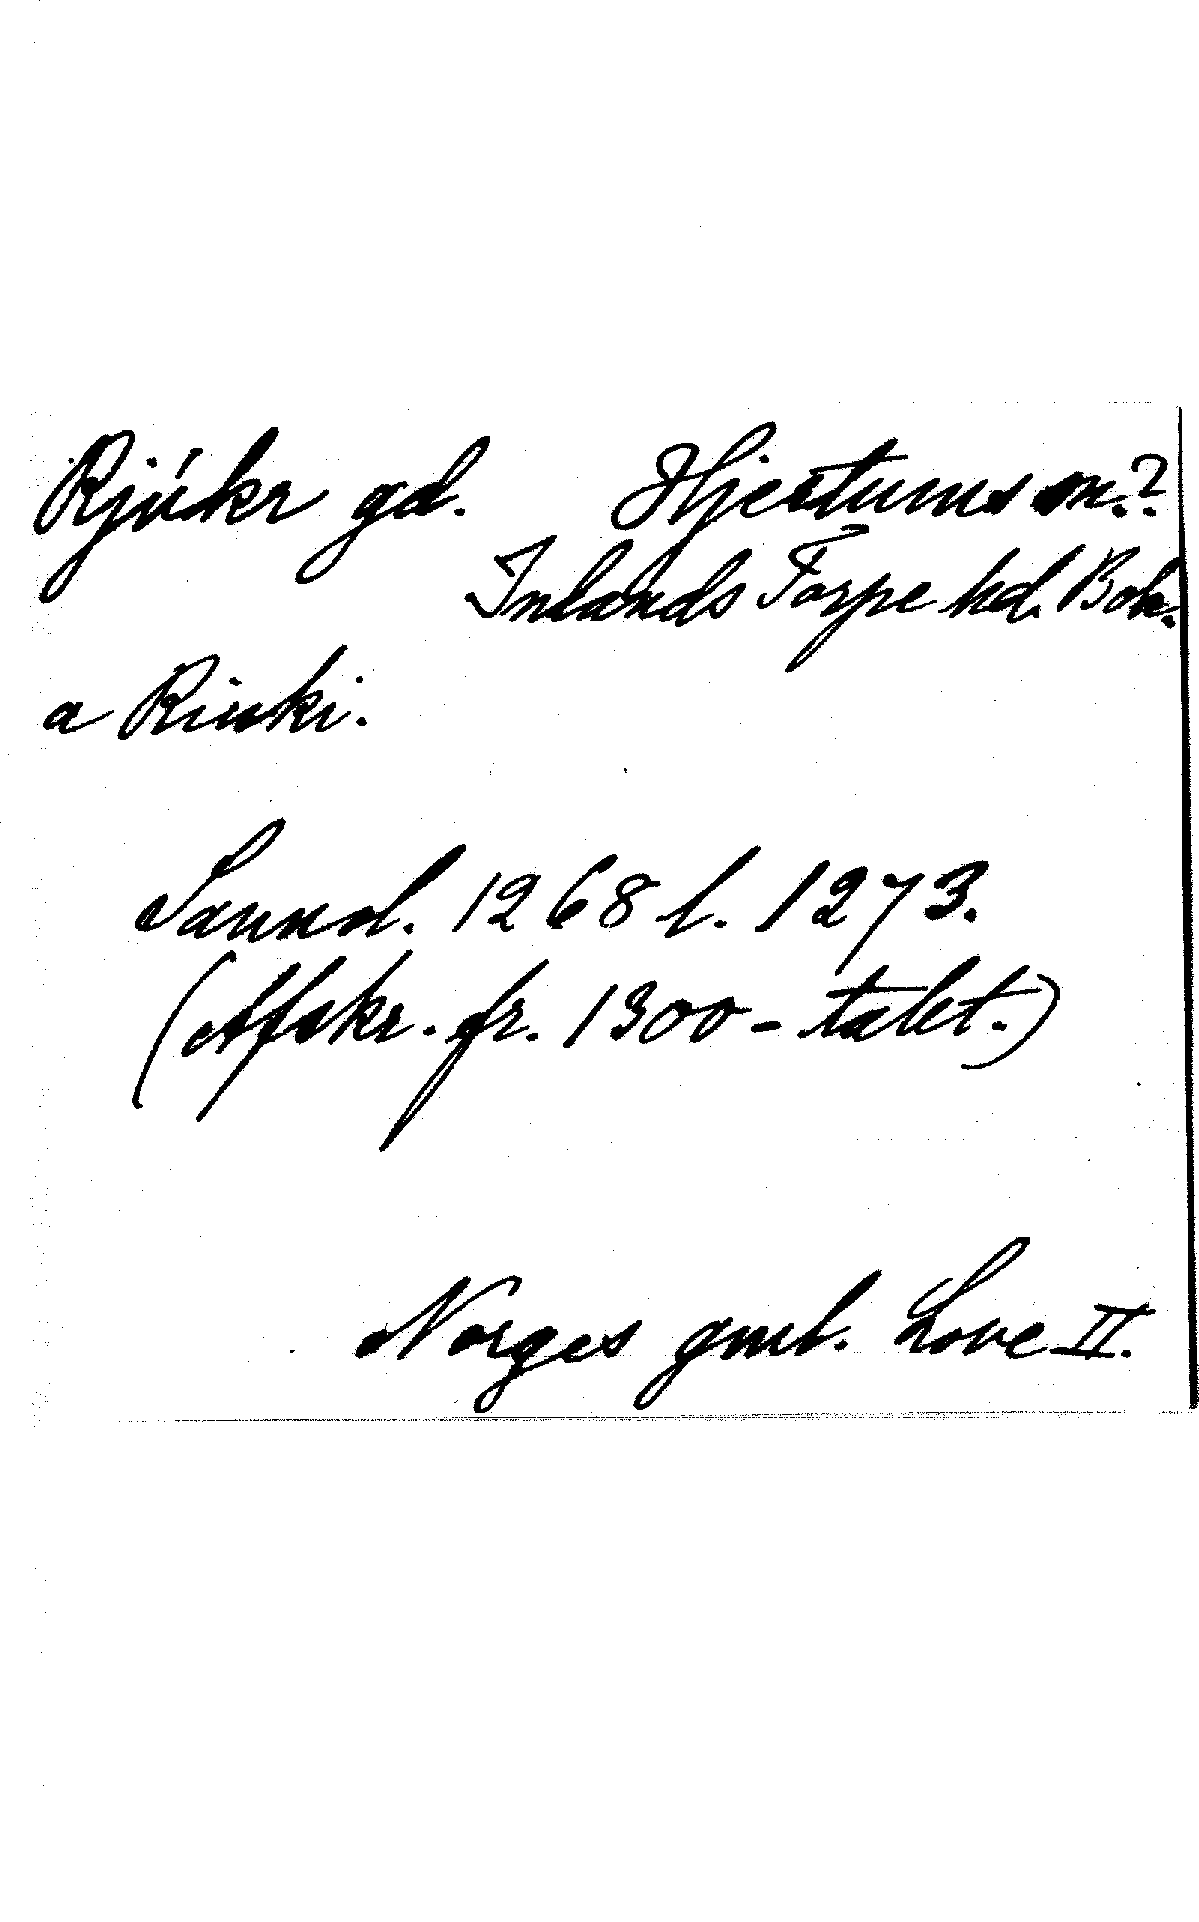 Rjúkr gd. Hjertums sn.?
Inlands Torpe hd. Boh.
a Riuki.
Sannol. 1268 l. 1273.
(Afskr. fr. 1300-talet.)
Norges gml. Love II.